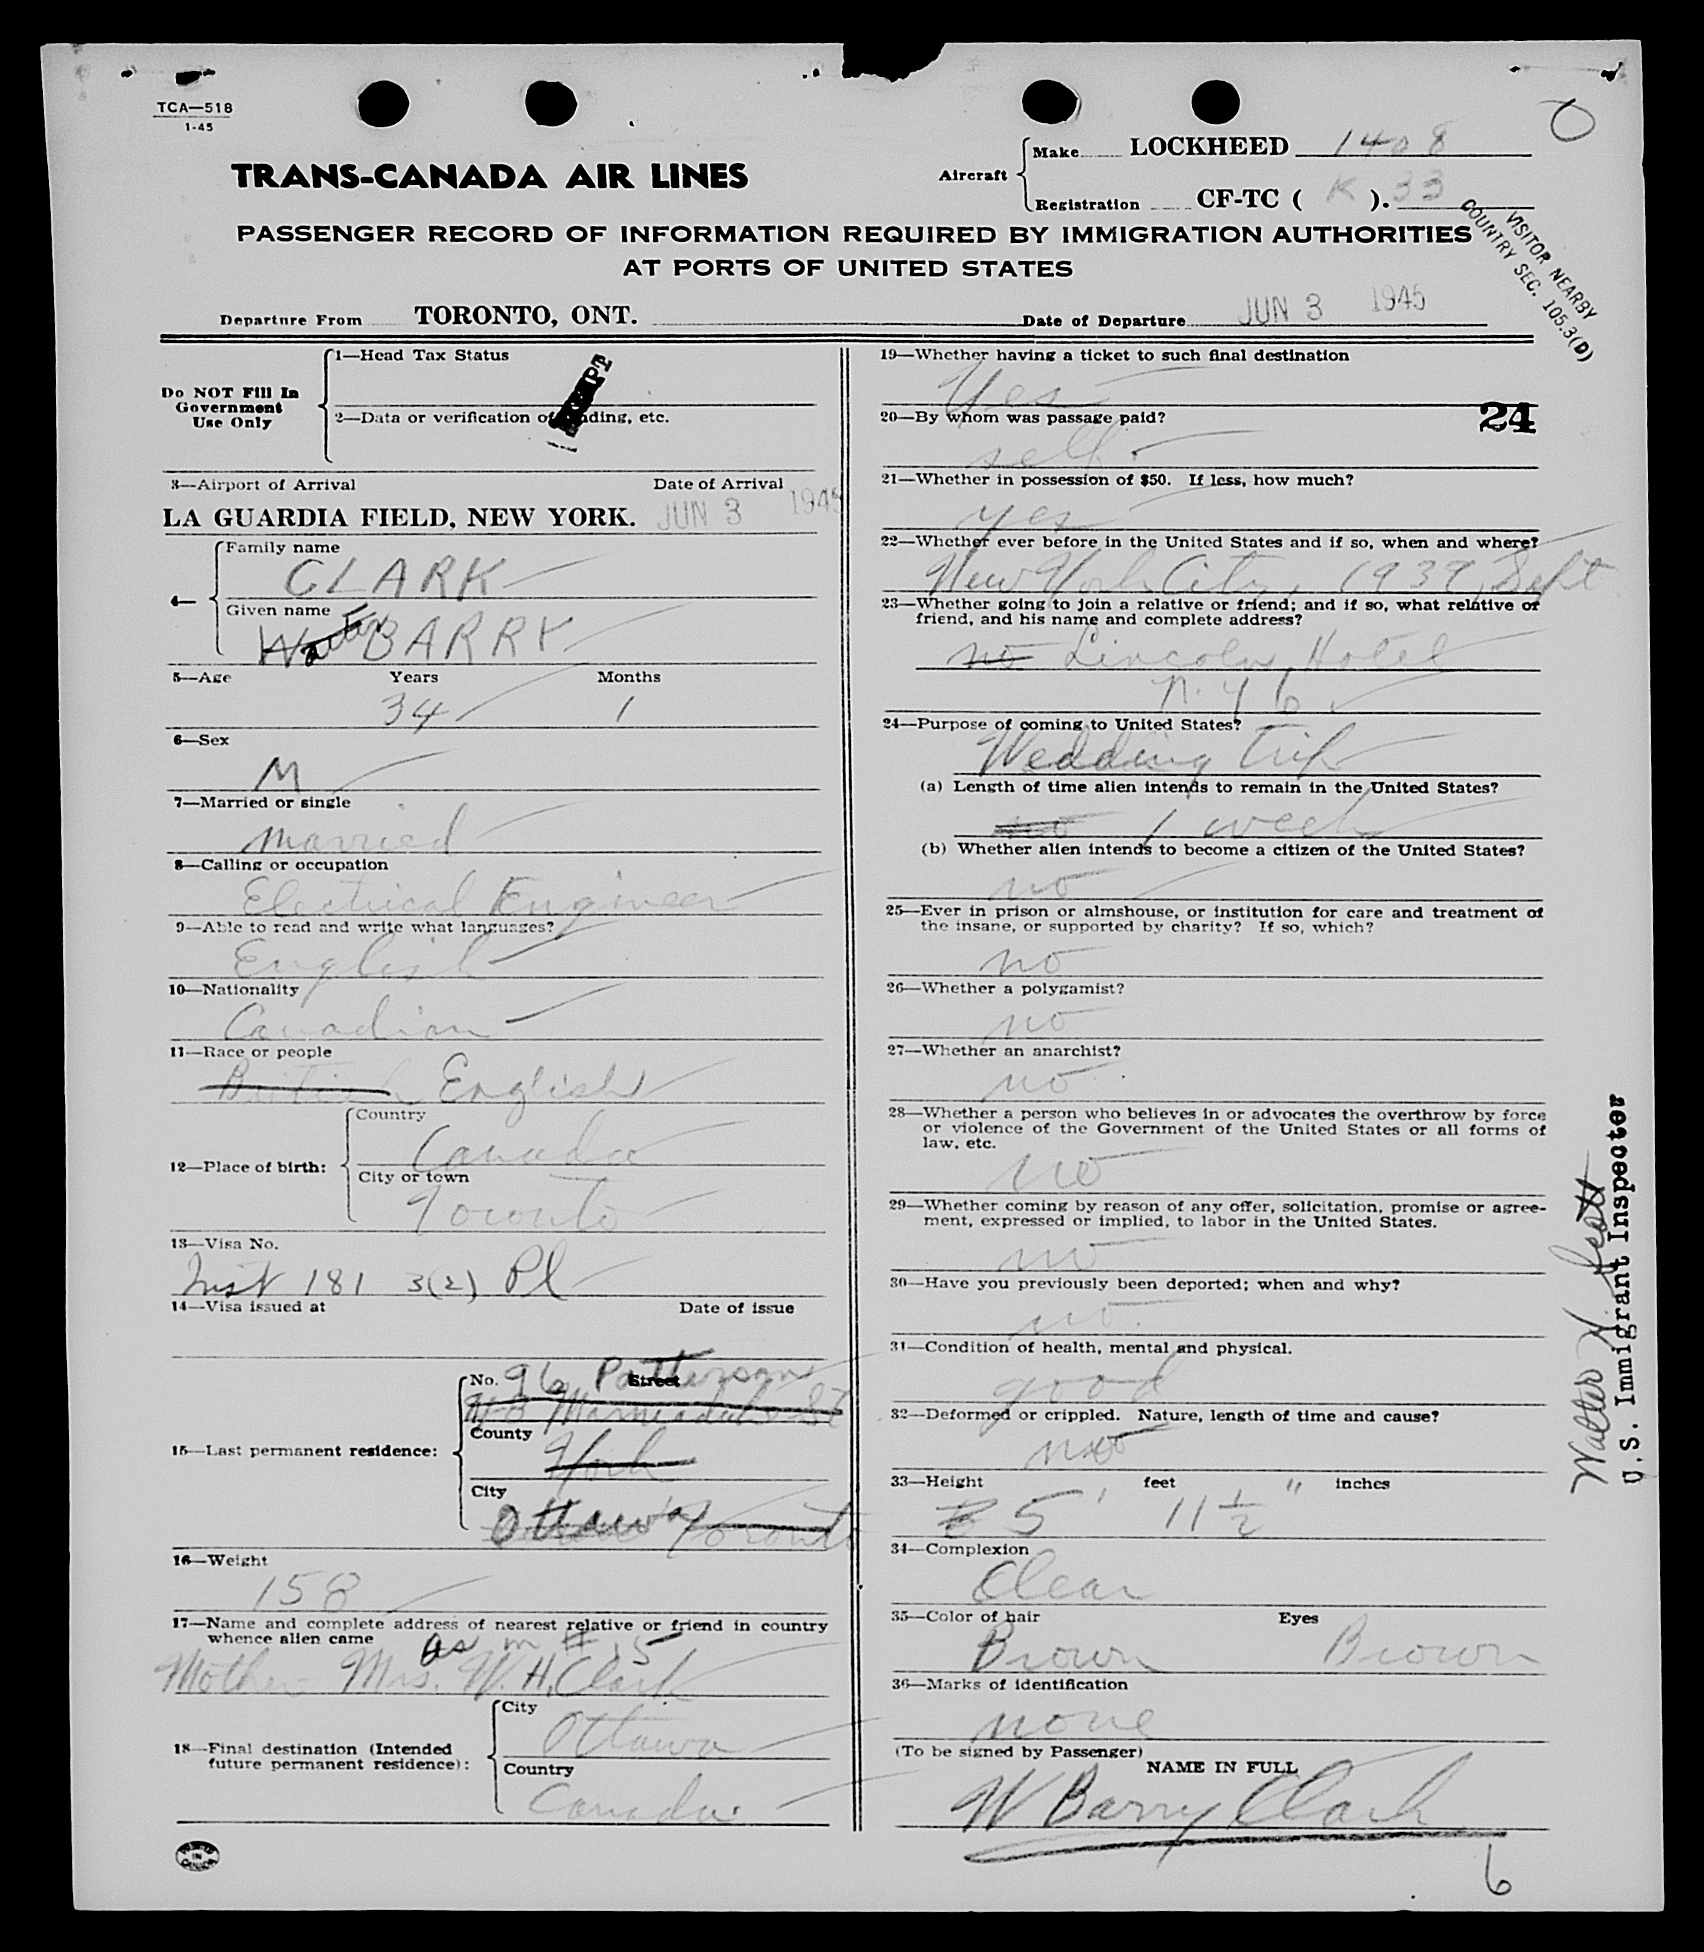 TCA—518
1-45
TRANS-CANADA AIR LINES
Aircraft
Make LOCKHEED 1408
Registration CF-TC ( K ). 33
PASSENGER RECORD OF INFORMATION REQUIRED BY IMMIGRATION AUTHORITIES
AT PORTS OF UNITED STATES
VISITOR NEARBY
COUNTRY SEC. 105.3(D)
Departure From TORONTO, ONT. Date of Departure JUN 3 1945
Do NOT Fill In
Government
Use Only
1—Head Tax Status
2—Data or verification of landing, etc.
3—Airport of Arrival Date of Arrival
LA GUARDIA FIELD, NEW YORK. JUN 3 1945
4—
Family name
CLARK
Given name
Walter BARRY
5—Age Years Months
34 1
6—Sex
M
7—Married or single
married
8—Calling or occupation
Electrical Engineer
9—Able to read and write what languages?
English
10—Nationality
Canadian
11—Race or people
British English
12—Place of birth:
Country
Canada
City or town
Toronto
13—Visa No.
Inst 181 3(2) Pl
14—Visa issued at Date of issue
15—Last permanent residence:
No. 96 Patterson Street
St
County
York
City
Ottawa Toronto
16—Weight
158
17—Name and complete address of nearest relative or friend in country
whence alien came as in # 15
Mother Mrs. W. H. Clark
18—Final destination (Intended
future permanent residence):
City
Ottawa
Country
Canada.
19—Whether having a ticket to such final destination
Yes
20—By whom was passage paid? 24
self.
21—Whether in possession of $50. If less, how much?
yes
22—Whether ever before in the United States and if so, when and where?
New York City, 1939, Sept
23—Whether going to join a relative or friend; and if so, what relative or
friend, and his name and complete address?
no Lincoln Hotel
N.Y.C.
24—Purpose of coming to United States?
Wedding trip
(a) Length of time alien intends to remain in the United States?
no 1 week
(b) Whether alien intends to become a citizen of the United States?
no
25—Ever in prison or almshouse, or institution for care and treatment of
the insane, or supported by charity? If so, which?
no
26—Whether a polygamist?
no
27—Whether an anarchist?
no
28—Whether a person who believes in or advocates the overthrow by force
or violence of the Government of the United States or all forms of
law, etc.
no
29—Whether coming by reason of any offer, solicitation, promise or agree-
ment, expressed or implied, to labor in the United States.
no
30—Have you previously been deported; when and why?
no.
31—Condition of health, mental and physical.
good
32—Deformed or crippled. Nature, length of time and cause?
no
33—Height feet inches
5 ' 11 1/2 "
34—Complexion
Clear
35—Color of hair Eyes
Brown Brown
36—Marks of identification
none
(To be signed by Passenger)
NAME IN FULL
W Barry Clark
6
Walter H. Scott
U.S. Immigrant Inspector